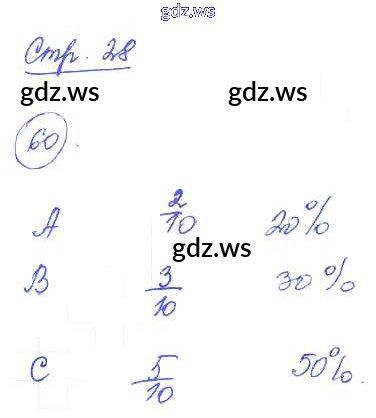 gdz.ws
Стр. 28
gdz.ws gdz.ws
60.
A 2/10 20%
gdz.ws
B 3/10 30%
C 5/10 50%.